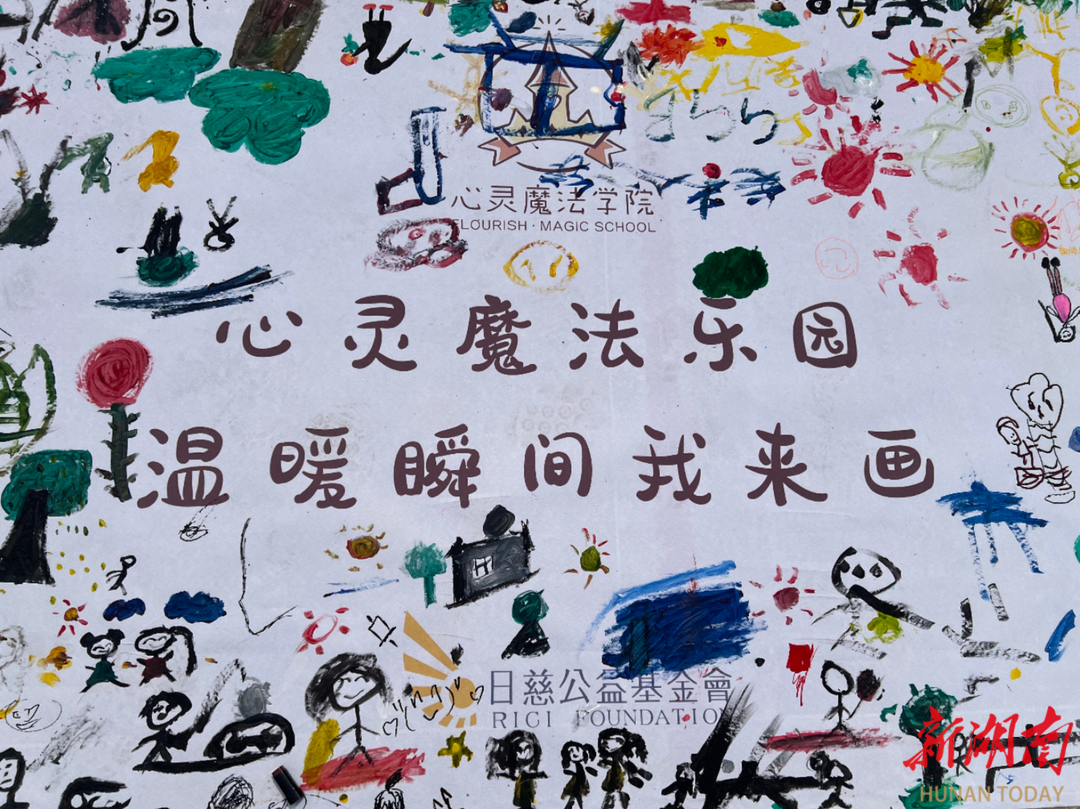 心灵魔法学院
FLOURISH · MAGIC SCHOOL
心灵魔法乐园
温暖瞬间我来画
日慈公益基金會
RICI FOUNDATION
新湖南
HUNAN TODAY